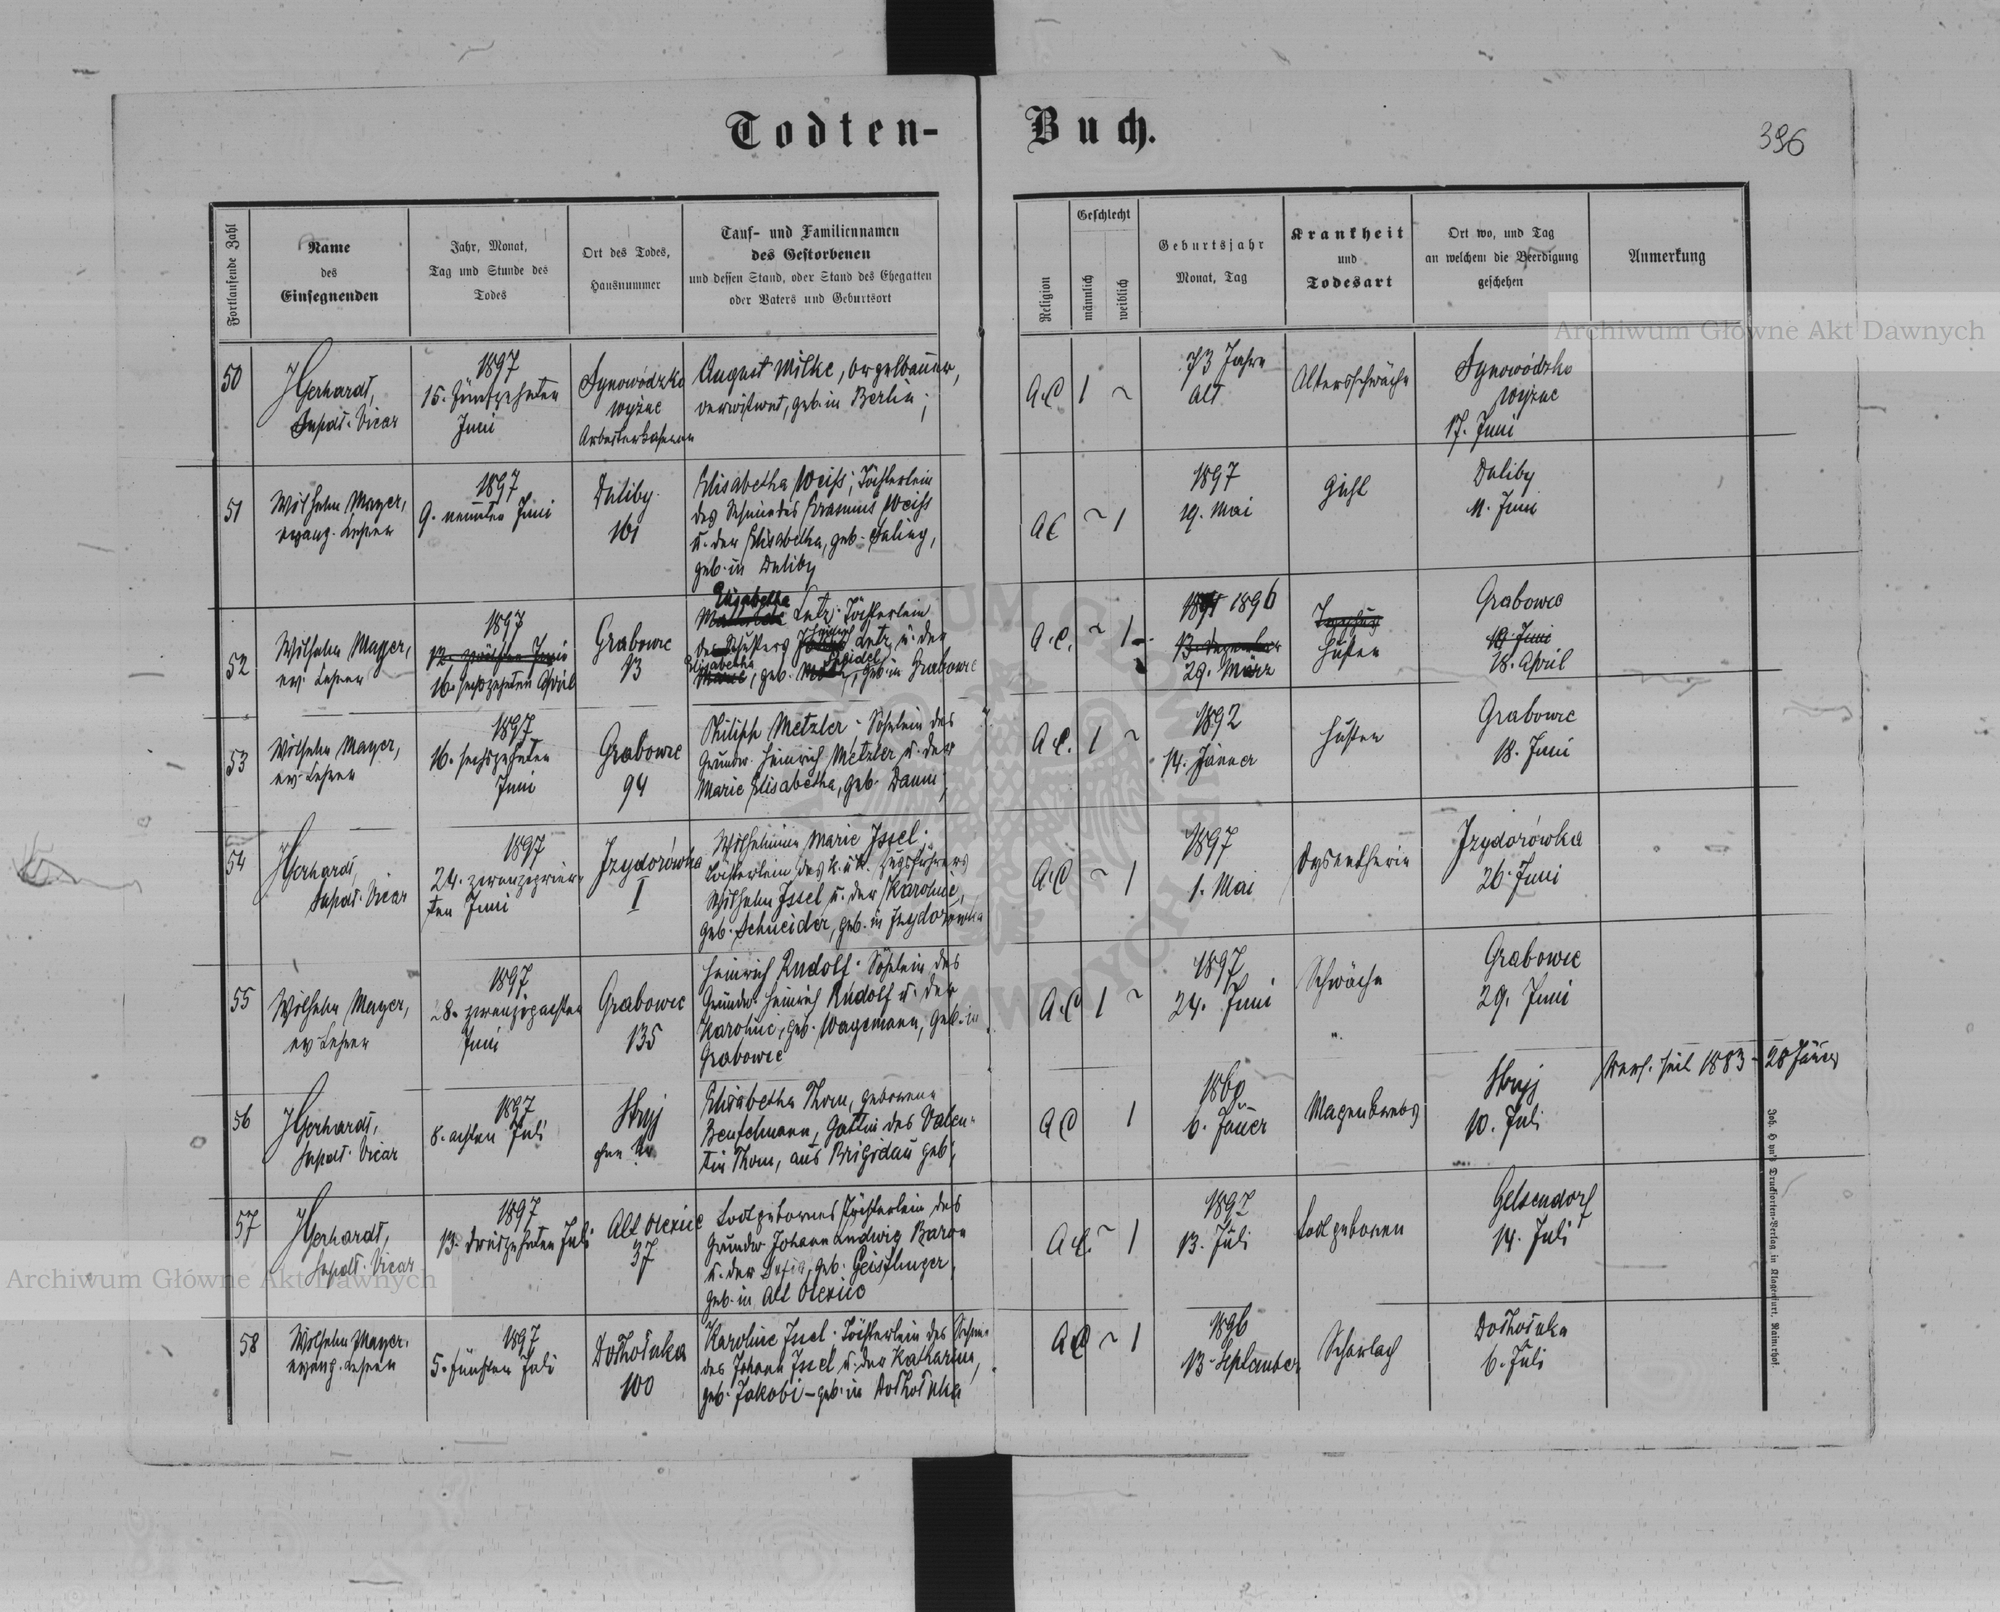 Todten-Buch.
396
Fortlaufende Zahl
Name
des
Einsegnenden
Jahr, Monat,
Tag und Stunde des
Todes
Ort des Todes,
Hausnummer
Tauf- und Familiennamen
des Gestorbenen
und dessen Stand, oder Stand des Ehegatten
oder Vaters und Geburtsort
Religion
Geschlecht
männlich
weiblich
Geburtsjahr
Monat, Tag
Krankheit
und
Todesart
Ort wo, und Tag
an welchem die Beerdigung
geschehen
Anmerkung
Archiwum Główne Akt Dawnych
50
JGerhardt,
Supdt. Vicar
1897
15. Fünfzehnten
Juni
Synowódzko
wyżne
Arbeiterkaserne
August Milke, Orgelbauer,
verwitwet, geb. in Berlin;
A.C
1 ~
73 Jahre
alt
Altersschwäche
Synowódzko
wyżne
17. Juni
51
Wilhelm Mayer,
evang. Lehrer
1897
9. neunten Juni
Duliby
161
Elisabetha Weiss, Töchterlein
des Schmiedes Erasmus Weiss
u. der Elisabetha, geb.
geb. in Duliby
AC
~ 1
1897
19. Mai
Duliby
11. Juni
52
Wilhelm Mayer,
ev. Lehrer
1897
12. zwölften Juni
16. sechszehnten April
Grabowc
13
Elisabetha
Lutz; Töchterlein
des Schusters Lutz u. der
Elisabetha
Marie, geb. geb. in Grabowc
A.C.
~ 1
1896
13. Dezember
29. März
Husten
Grabowc
18. April
53
Wilhelm Mayer,
ev. Lehrer
1897
16. sechszehnten
Juni
Grabowc
94
Philipp Metzler; Söhnlein des
Grundw. Heinrich Metzler u. der
Marie Elisabetha, geb. Daum;
A.C.
1 ~
1892
14. Jänner
Husten
Grabowc
18. Juni
54
JGerhardt,
Supdt. Vicar
1897
24. zwanzigvier-
ten Juni
Izydorówka
I
Wilhelmine Marie Issel;
Töchterlein des k. u. k. Zugsführers
Wilhelm Issel u. der Karoline,
geb. Schneider, geb. in Izydorówka
A.C
~ 1
1897
1. Mai
Dysentherie
Izydorówka
26. Juni
55
Wilhelm Mayer,
ev. Lehrer
1897
28. zwanzigachten
Juni
Grabowc
135
Heinrich Rudolf; Söhnlein des
Grundw. Heinrich Rudolf u. der
Karoline, geb. Wagemann, geb. in
Grabowc
A.C
1 ~
1897
24. Juni
Schwäche
Grabowc
29. Juni
56
JGerhardt,
Supdt. Vicar
1897
8. achten Juli
Stryj
ohne Nr.
Elisabetha Thom, geborene
Beutelmann, Gattin des Valen-
tin Thom, aus Brigidau geb;
AC
1
6. Jänner
Magenkrebs
Stryj
10. Juli
Verh. seit 1883 - 28 Jänner
57
JGerhardt,
Supdt. Vicar
1897
13. dreizehnten Juli
Alt Olexice
37
Todtgebornes Töchterlein des
Grundw. Johann Ludwig Baron
u. der Sofia, geb. Geistlinger,
geb. in Alt Olexice
A.C.
~ 1
1897
13. Juli
Todtgeboren
Gelsendorf
14. Juli
58
Wilhelm Mayer,
evang. Lehrer
1897
5. fünften Juli
Dothołuka
100
Karoline Issel; Töchterlein des Schmie-
des Johann Issel u. der Katharina,
geb. Jakobi - geb. in Dothołuka
AC
~ 1
1896
13. September
Scharlach
Dothołuka
6. Juli
Archiwum Główne Akt Dawnych